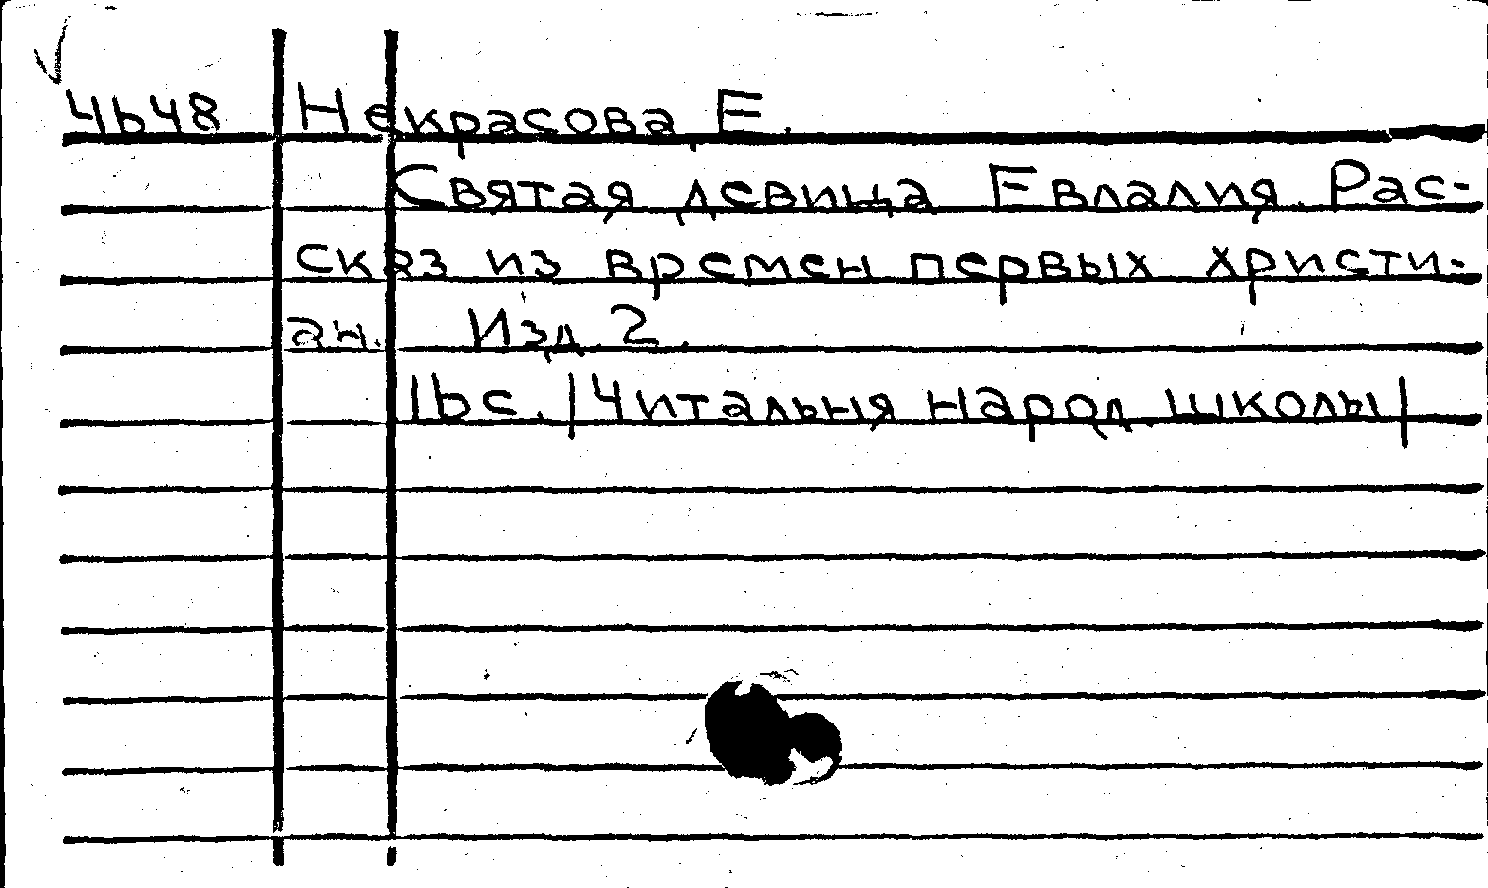 4648 Некрасова, Е.
Святая девица Евлалия. Рас-
сказ из времен первых христи-
ан. Изд. 2.
16с. /Читальня народ. школы/